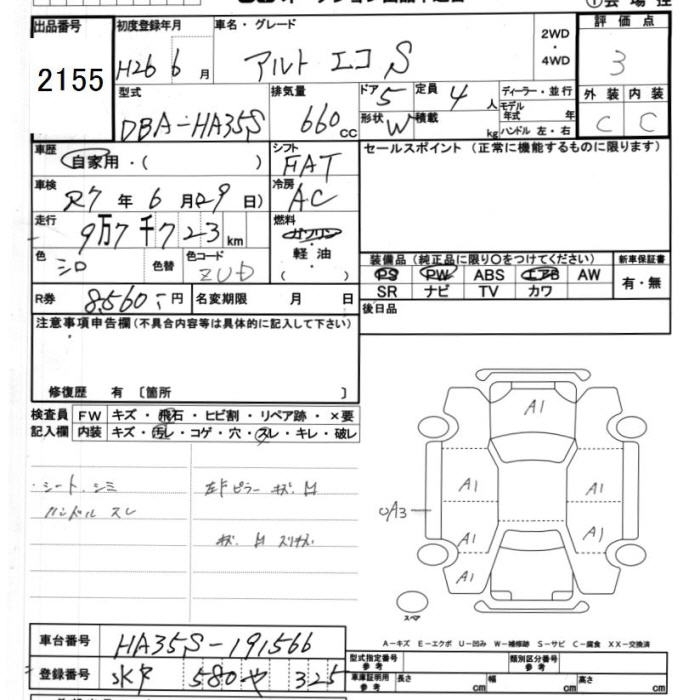 出品番号 初度登録年月 車名・グレード 2WD・4WD 評価点
2155 H26 6月 アルト エコ S 3
型式 排気量 ドア 定員 ディーラー・並行 外装 内装
DBA-HA35S 660cc 5 4人 モデル年式 年 C C
形状 W 積載 kg ハンドル 左・右
車歴 自家用・( ) シフト FAT セールスポイント(正常に機能するものに限ります)
車検 R7年 6月 29日) 冷房 AC
走行 9万7千723km 燃料 ガソリン・軽油 ( )
色 シロ 色替 色コード ZUD
装備品(純正品に限り○をつけてください) 新車保証書
PS PW ABS エアB AW 有・無
SR ナビ TV カワ
R券 8,560-円 名変期限 月 日 後日品
注意事項申告欄(不具合内容等は具体的に記入して下さい)
修復歴 有 〔箇所 〕
検査員 FW キズ・飛石・ヒビ割・リペア跡・×要
記入欄 内装 キズ・汚レ・コゲ・穴・スレ・キレ・破レ
・シート シミ 左F ピラー キズ 凹
ハンドル スレ キズ 凹 スリキズ
A1
A1 A1
○A3
A1 A1
A1
スペア
A-キズ E-エクボ U-凹み W-補修跡 S-サビ C-腐食 XX-交換済
車台番号 HA35S-191566 型式指定番号 参考 類別区分番号 参考
登録番号 580 や 325 車庫証明用 参考 長さ cm 幅 cm 高さ cm